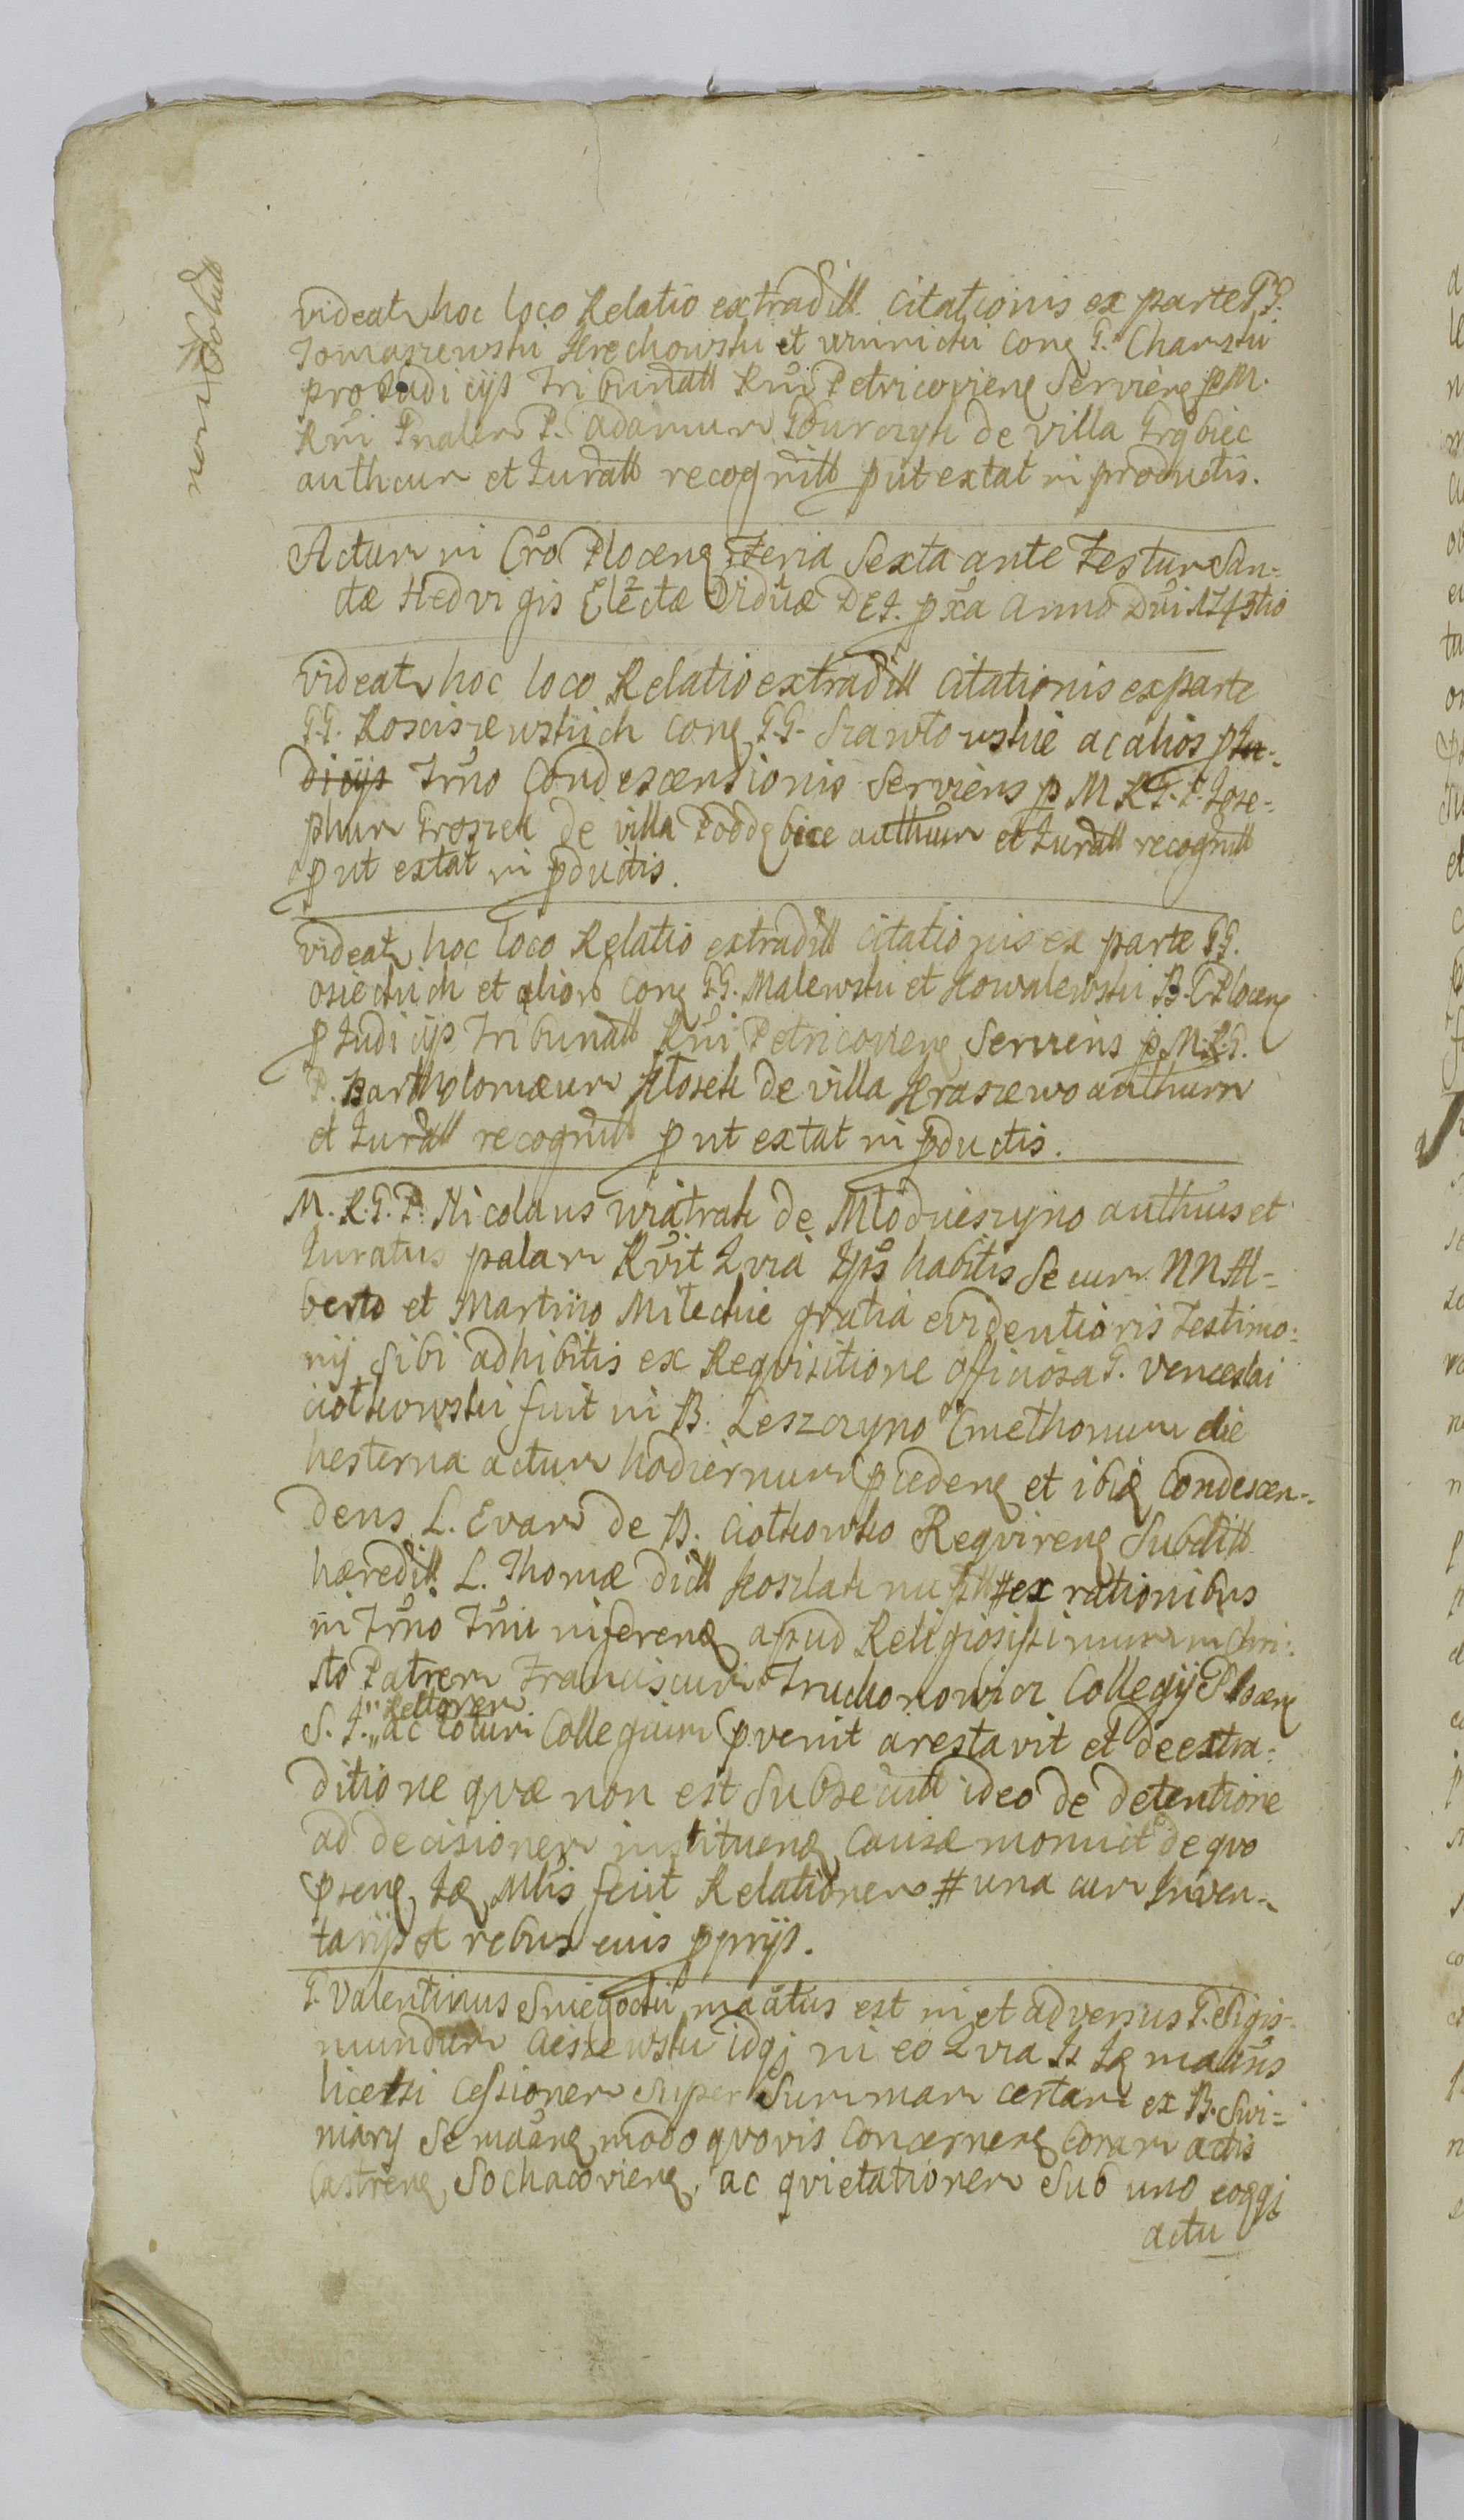 non
videat hoc loco Relatio extraditt citationis ex parte G.G.
Tomaszewski Krechowski et conq G. Charski
pro Judicijs Tribunatt Rni Petricovienq Serviens p M.
Rni Gnalem P. Adamum de villa Grąbiec
authum et Juratt recognitt put extat in productis.
Actum in Cro Plocenq Feria Sexta ante Festum San=
ctæ Hedvigis Electæ Viduæ DEI. pxa Anno Dni 1743tio
videat hoc loco Relatio extraditt Citationis ex parte
G.G. Kosciszewskich conq G.G. Szawłowskie ac alios p Ju=
dicijs Trno Condescensionis Serviens p M R G. P. Jose=
phum Groszek de villa Poddębice authum et Juratt recognitt
put extat in pductis.
videat hoc loco Relatio extraditt Citationis ex parte G.G.
osieckich et alior conq G.G. Malewski et Kowalewski B. C Plocenq
p Judicijs Tribunatt Rni Petricovienq Serviens p. M. R. G.
P. Bartholomæum Kłosek de villa Kraszewo authum
et Juratt recognitt put extat in pductis.
M. R. G. P. Nicolaus wiatrak de Młodzieszyno authus et
Juratus palam Rvit Qvia Ips habitis Secum NN Al=
berto et Martino Miteckie gratia evidentioris testimo=
nij Sibi adhibitis ex Reqvisitione officiosa G. Venceslai
ciołkowski fuit in B. Leszczyno Cmethonum die
hesterna actum hodiernum pcedenq et ibiq Condescen=
dens L. Evam de B. Ciołkowko Reqvirenq Subditt
hæreditt L. Thomæ dictt Koszlak nuptt # ex rationibus
in Trno Trni inferenq apud Religiosissimum in Chri=
sto Patrem Franciscum Truchonowicz Collegij Plocenq
S. J. " Rectorem " ac totum Collegium pvenit arestavit et de extra=
ditione qvæ non est Subsecutt ideo de detentione
ad decisionem instituenq Causæ monuit de qvo
psenq Jq Mlis fecit Relationem # una cum Inven=
tarijs et rebus eius pprijs.
G. Valentinus Sniegocki maatus est in et adversus G. Sigis=
mundum Cieszewski idqz in eo Qvia Is Jq maans
licetsi Cessionem Super Summam certam ex B. Swi=
niary Se maanq modo qvovis Concernenq Coram actis
Castrenq Sochacovienq, ac qvietationem Sub uno eoqqz
actu